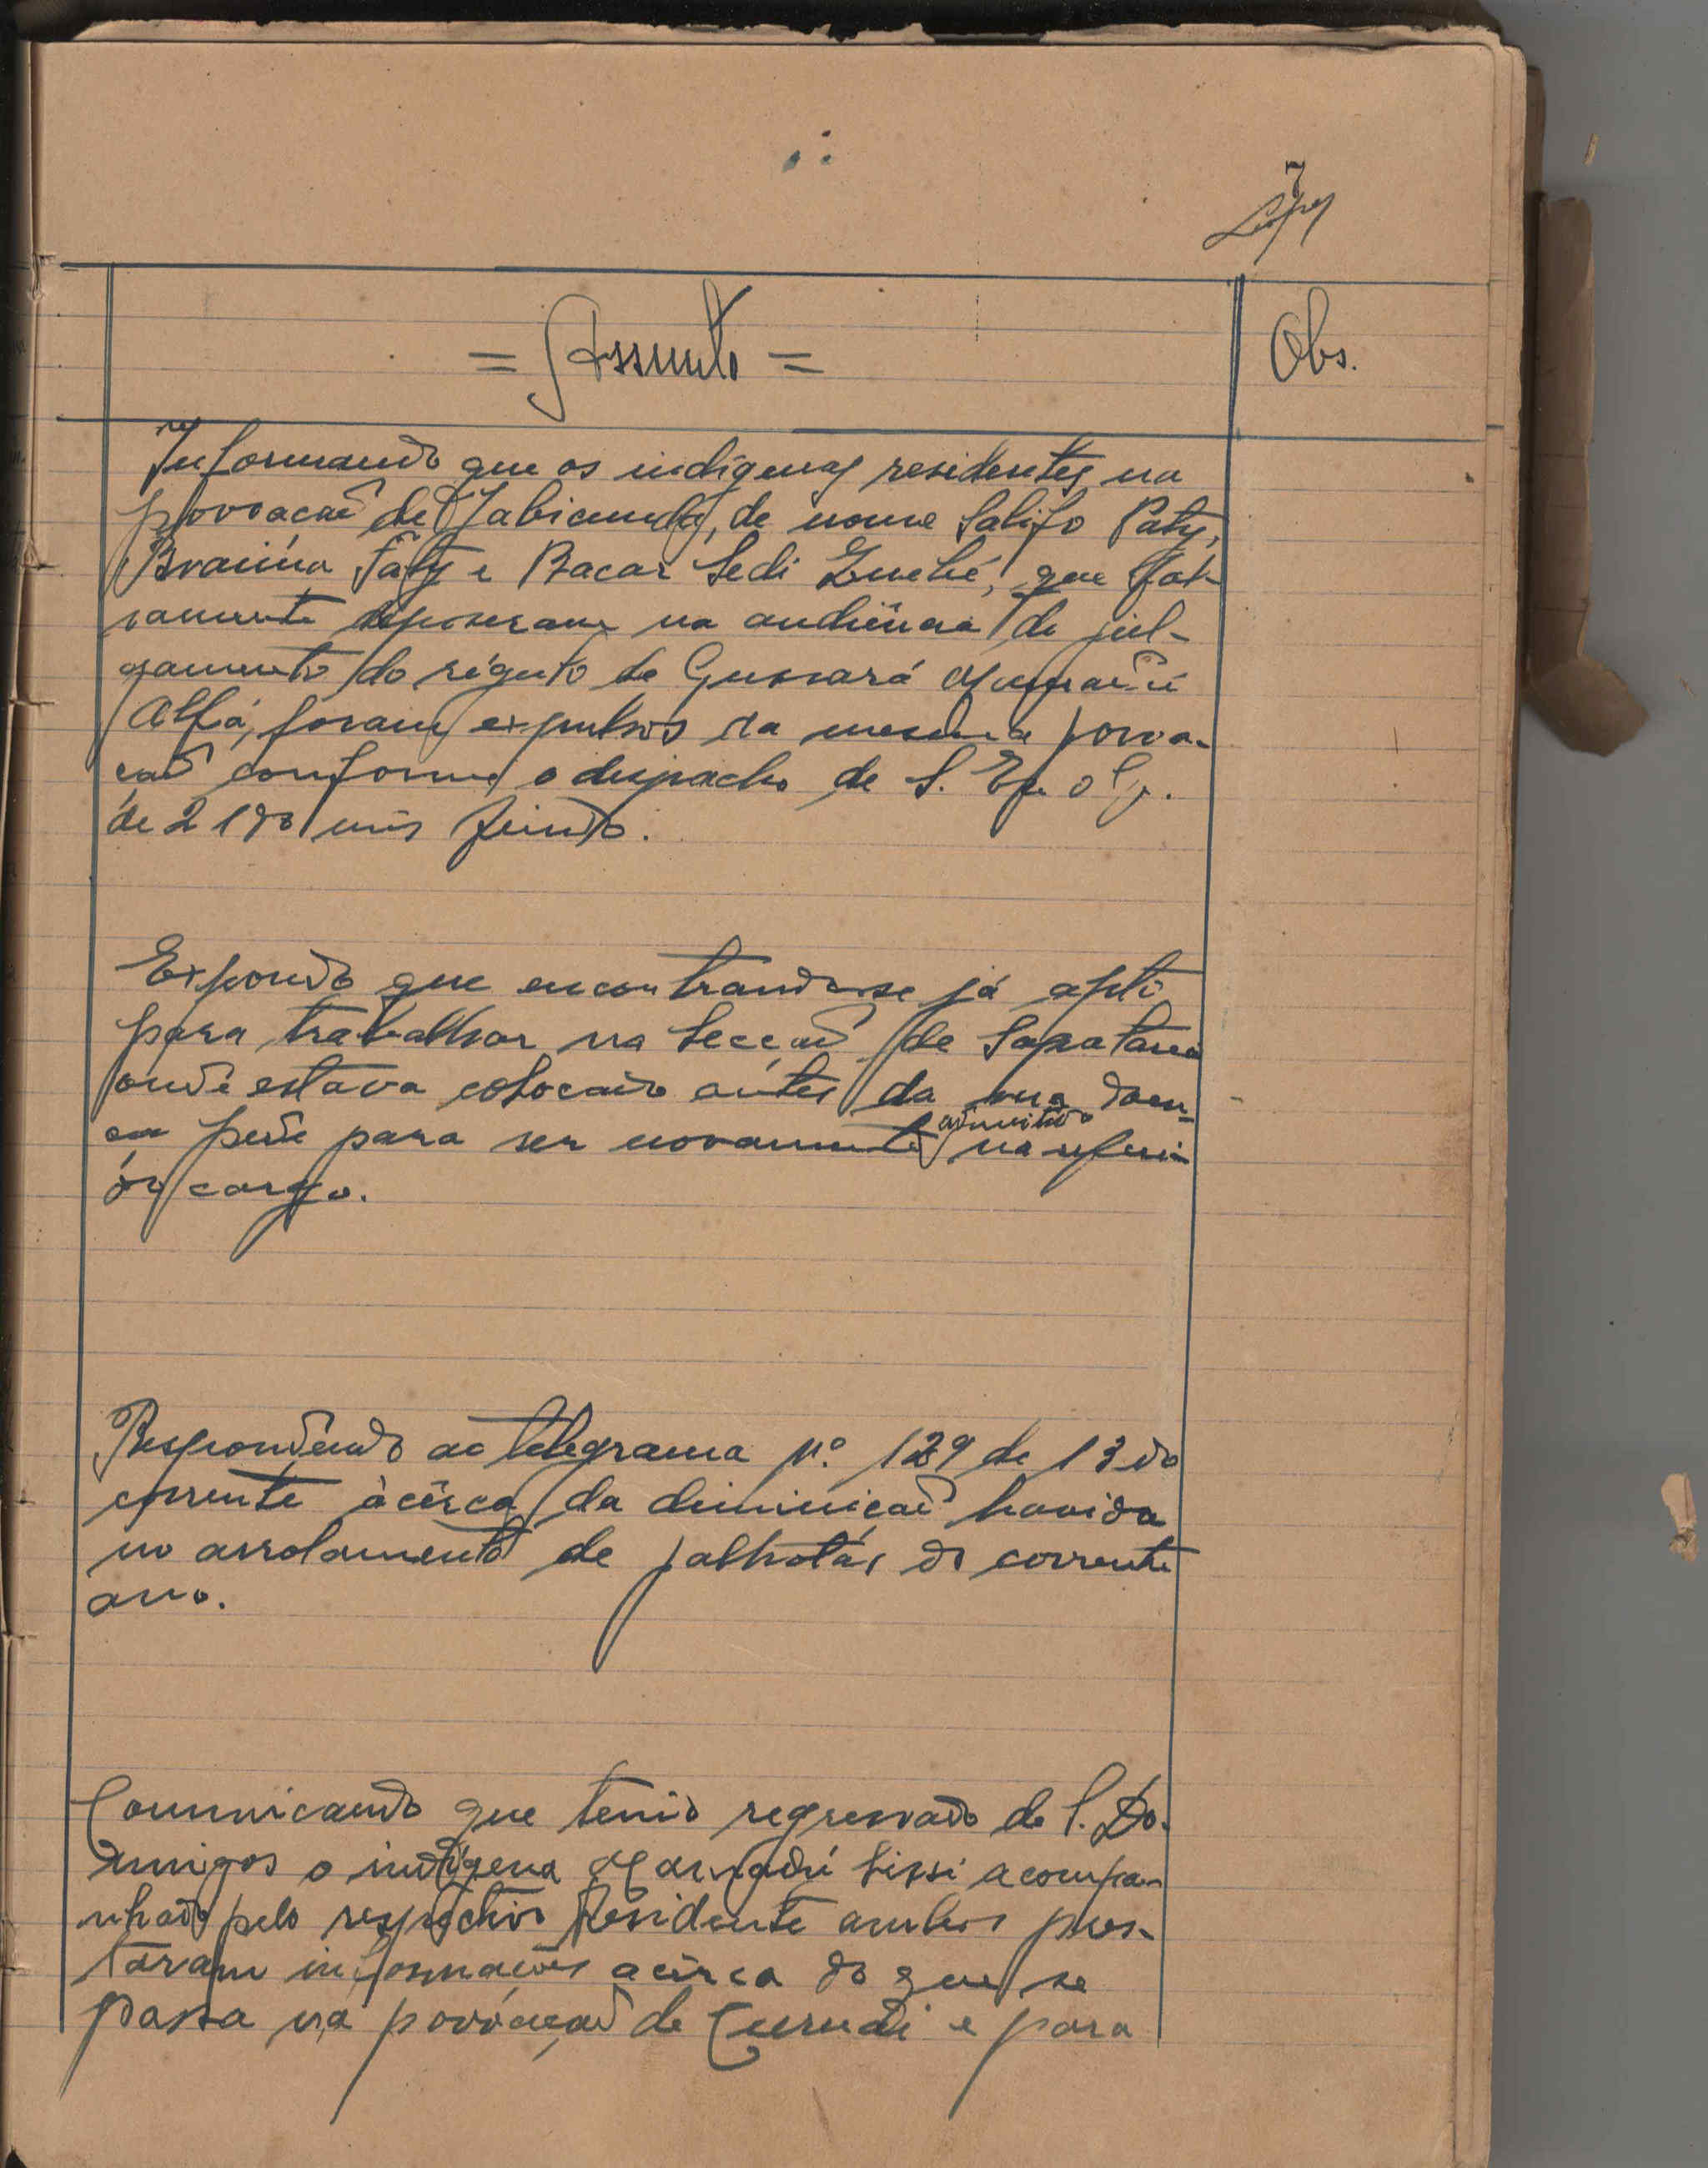 7
Lopes
= Assunto =
Obs.
Informando que os indígenas residentes na
povoação de Jabicunda, de nome Salifo Faty,
Braima Faty e Bacar Sedi Zuché, que fal-
samente deposeram na audiência de jul-
gamento do régulo de Gussará
Alfá, foram expulsos da mesma povoa-
ção conforme o despacho de S. Exª o G.
de 21 do mês findo.
Expondo que encontrando-se já apto
para trabalhar na Secção de Sapataria
onde estava colocado antes da sua doen-
ça pede para ser novamente admitido no referi-
do cargo.
Respondendo ao telegrama nº. 129 de 13 do
corrente àcêrca da diminuição havida
no arrolamento de palhotas do corrente
ano.
Comunicando que tendo regressado de S. Do-
mingos o indígena Mamadú Sissi acompa-
nhado pelo respectivo Residente ambos pres-
taram informações acêrca do que se
passa na povoação de e para